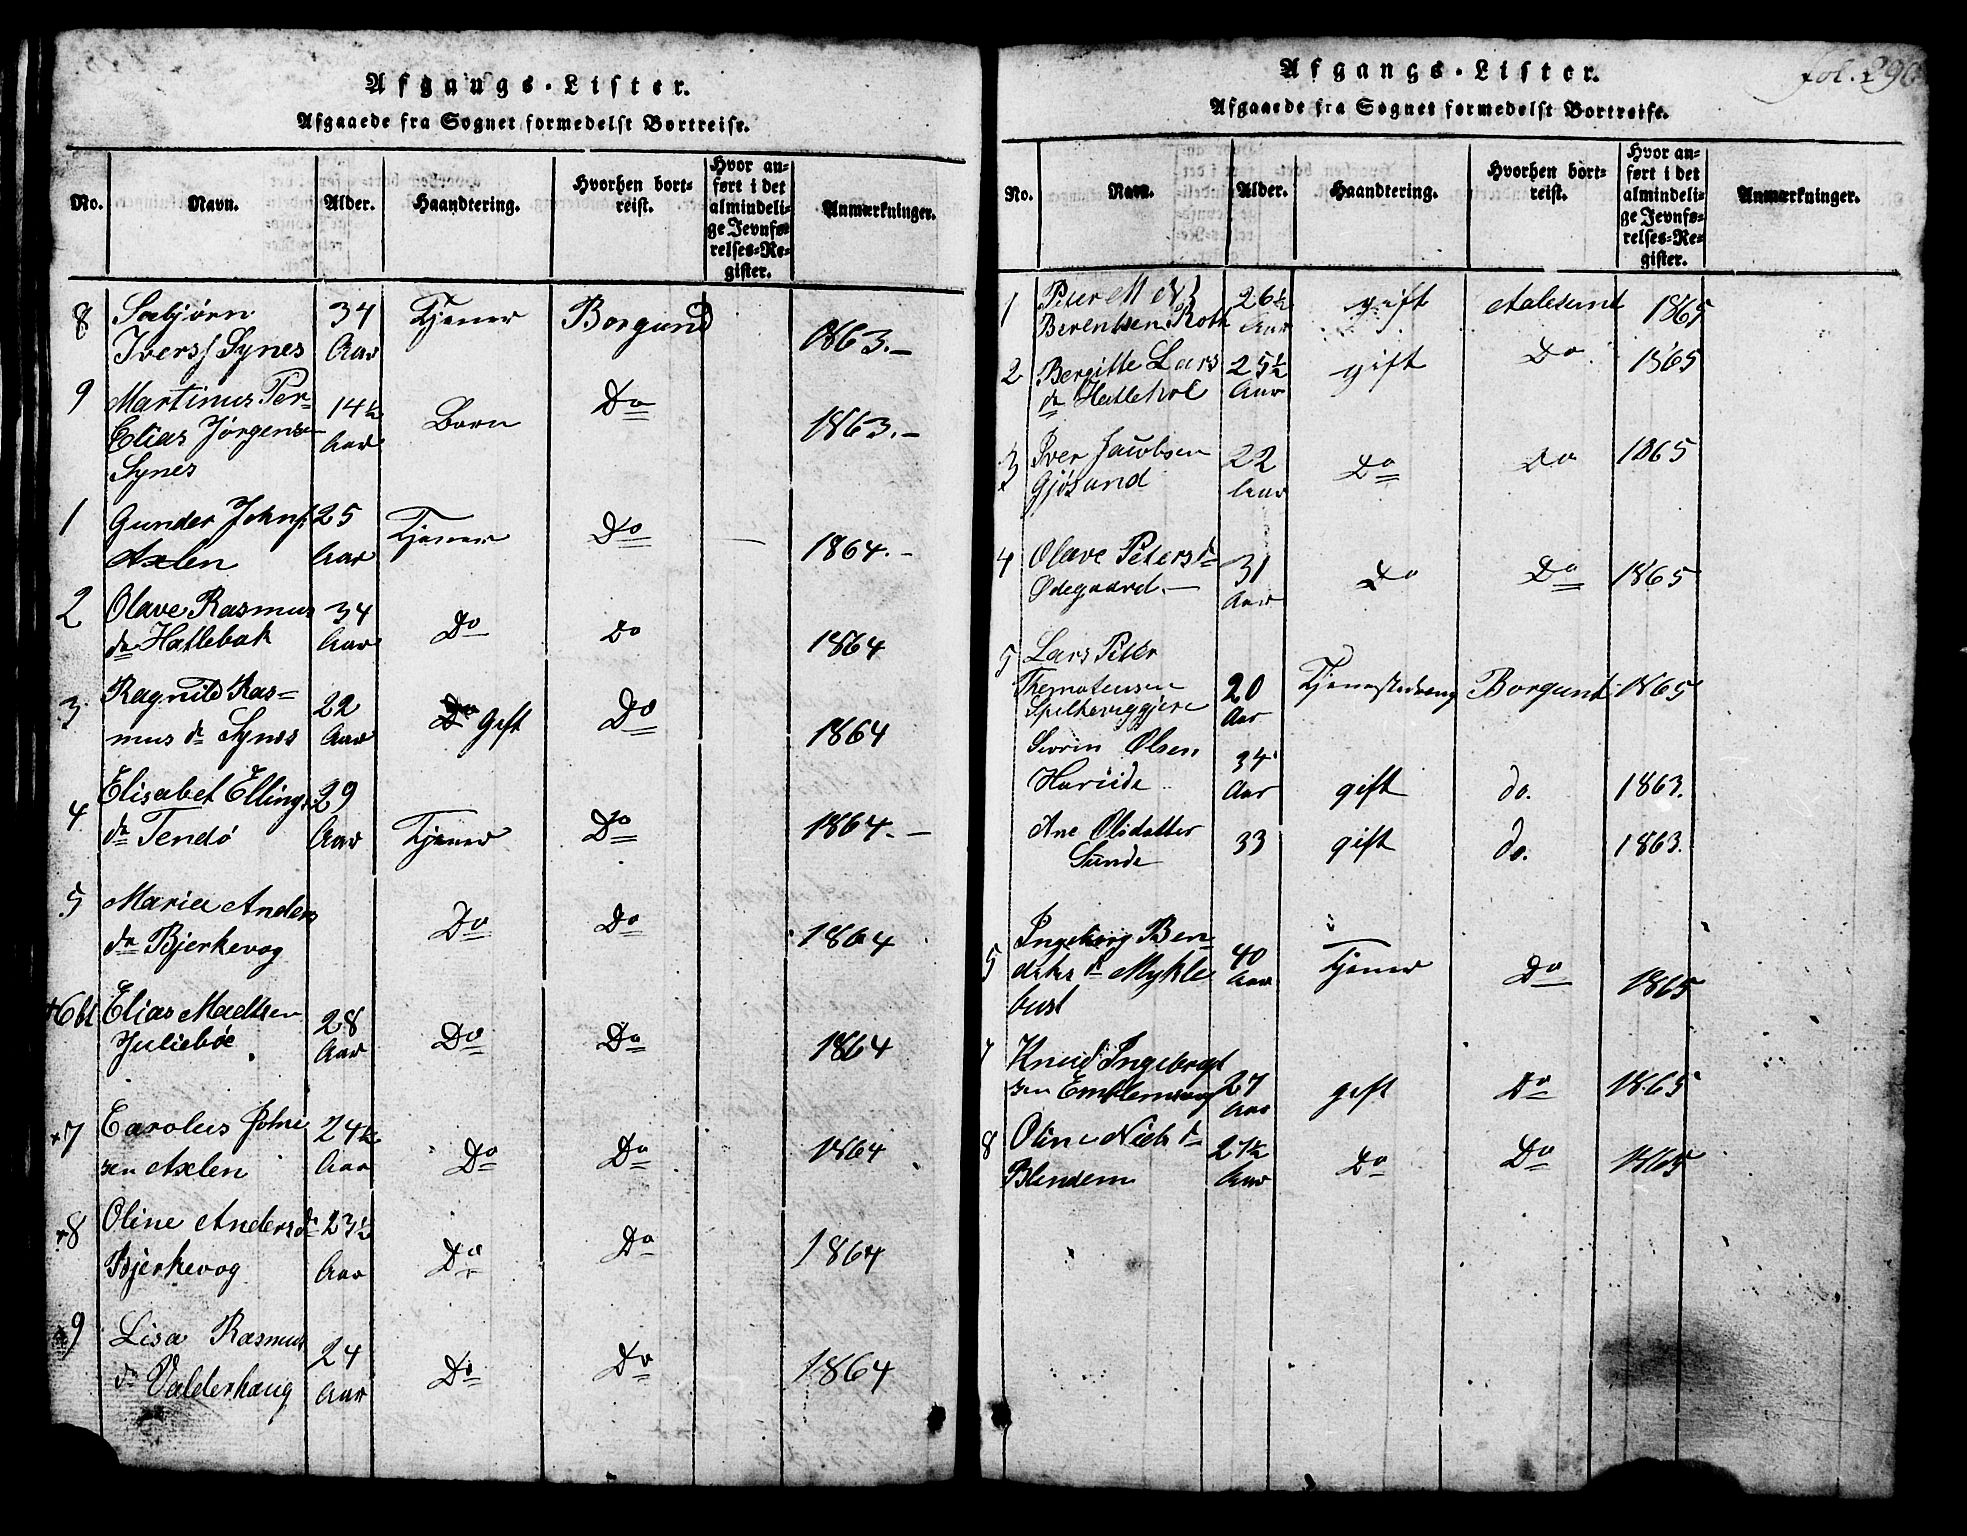 Afgangs-Lister.
Afgaaede fra Sognet formedelst Bortreise.
No. Navn. Alder. Haandtering. Hvorhen bortreist. Hvor anført i det almindelige Jevnførelses-Register. Anmærkninger.
8 Sæbjørn 34 Tjener Borgund
Ivers Synes Aar 1863.-
9 Martinus Per- 14½ Barn Do
Elias Jørgensen Aar 1863.-
Synes
1 Gunder Johns 25 Tjener Do
Axlen Aar 1864.-
2 Olave Rasmus 34 Do Do
da Hatlebak Aar 1864
3 Ragnild Ras- 22 Gift Do
mus da Synes Aar 1864
4 Elisabet Ellings 29
da Tendø Aar Tjener Do 1864.-
5 Maria Anders Do Do
da Bjerkevog 1864
+6 Elias Madtsen 28 Do Do
Juliebøe Aar 1864
+7 Carolus Johne 24½ Do Do 1864
sen Axlen Aar
+8 Oline Anders da 23½ Do Do
Bjerkevog Aar 1864
+9 Lisa Rasmus 24 Do Do 1864
da Valderhaug Aar
fol. 290
Afgangs-Lister.
Afgaaede fra Sognet formedelst Bortreise.
No. Navn. Alder. Haandtering. Hvorhen bortreist. Hvor anført i det almindelige Jevnførelses-Register. Anmærkninger.
1 Peter M 26½ gift Aalesund 1865
Berentsen Roth Aar
2 Bergitte Lars 25½ gift Do 1865
da Hatlehol Aar
3 Iver Jacobsen 22 Do Do 1865
Gjøsund Aar
4 Olave Peters da 31 Do Do 1865
Ødegaard.- Aar
5 Lars Peter
20 Tjenestedreng Borgund 1865
Aar
Sivrin Olsen 34
Aar gift do. 1863.
Ane Olsdatter 33 gift do. 1863.
Sunde
5 Ingeborg Ben- 40 Tjener Do
diks da Mykle Aar 1865
bust
7 Knud Ingebrigt
sen Emblemsvog 27 gift Do 1865
Aar
8 Oline Niels da 27½ Do Do 1865
Blendem Aar